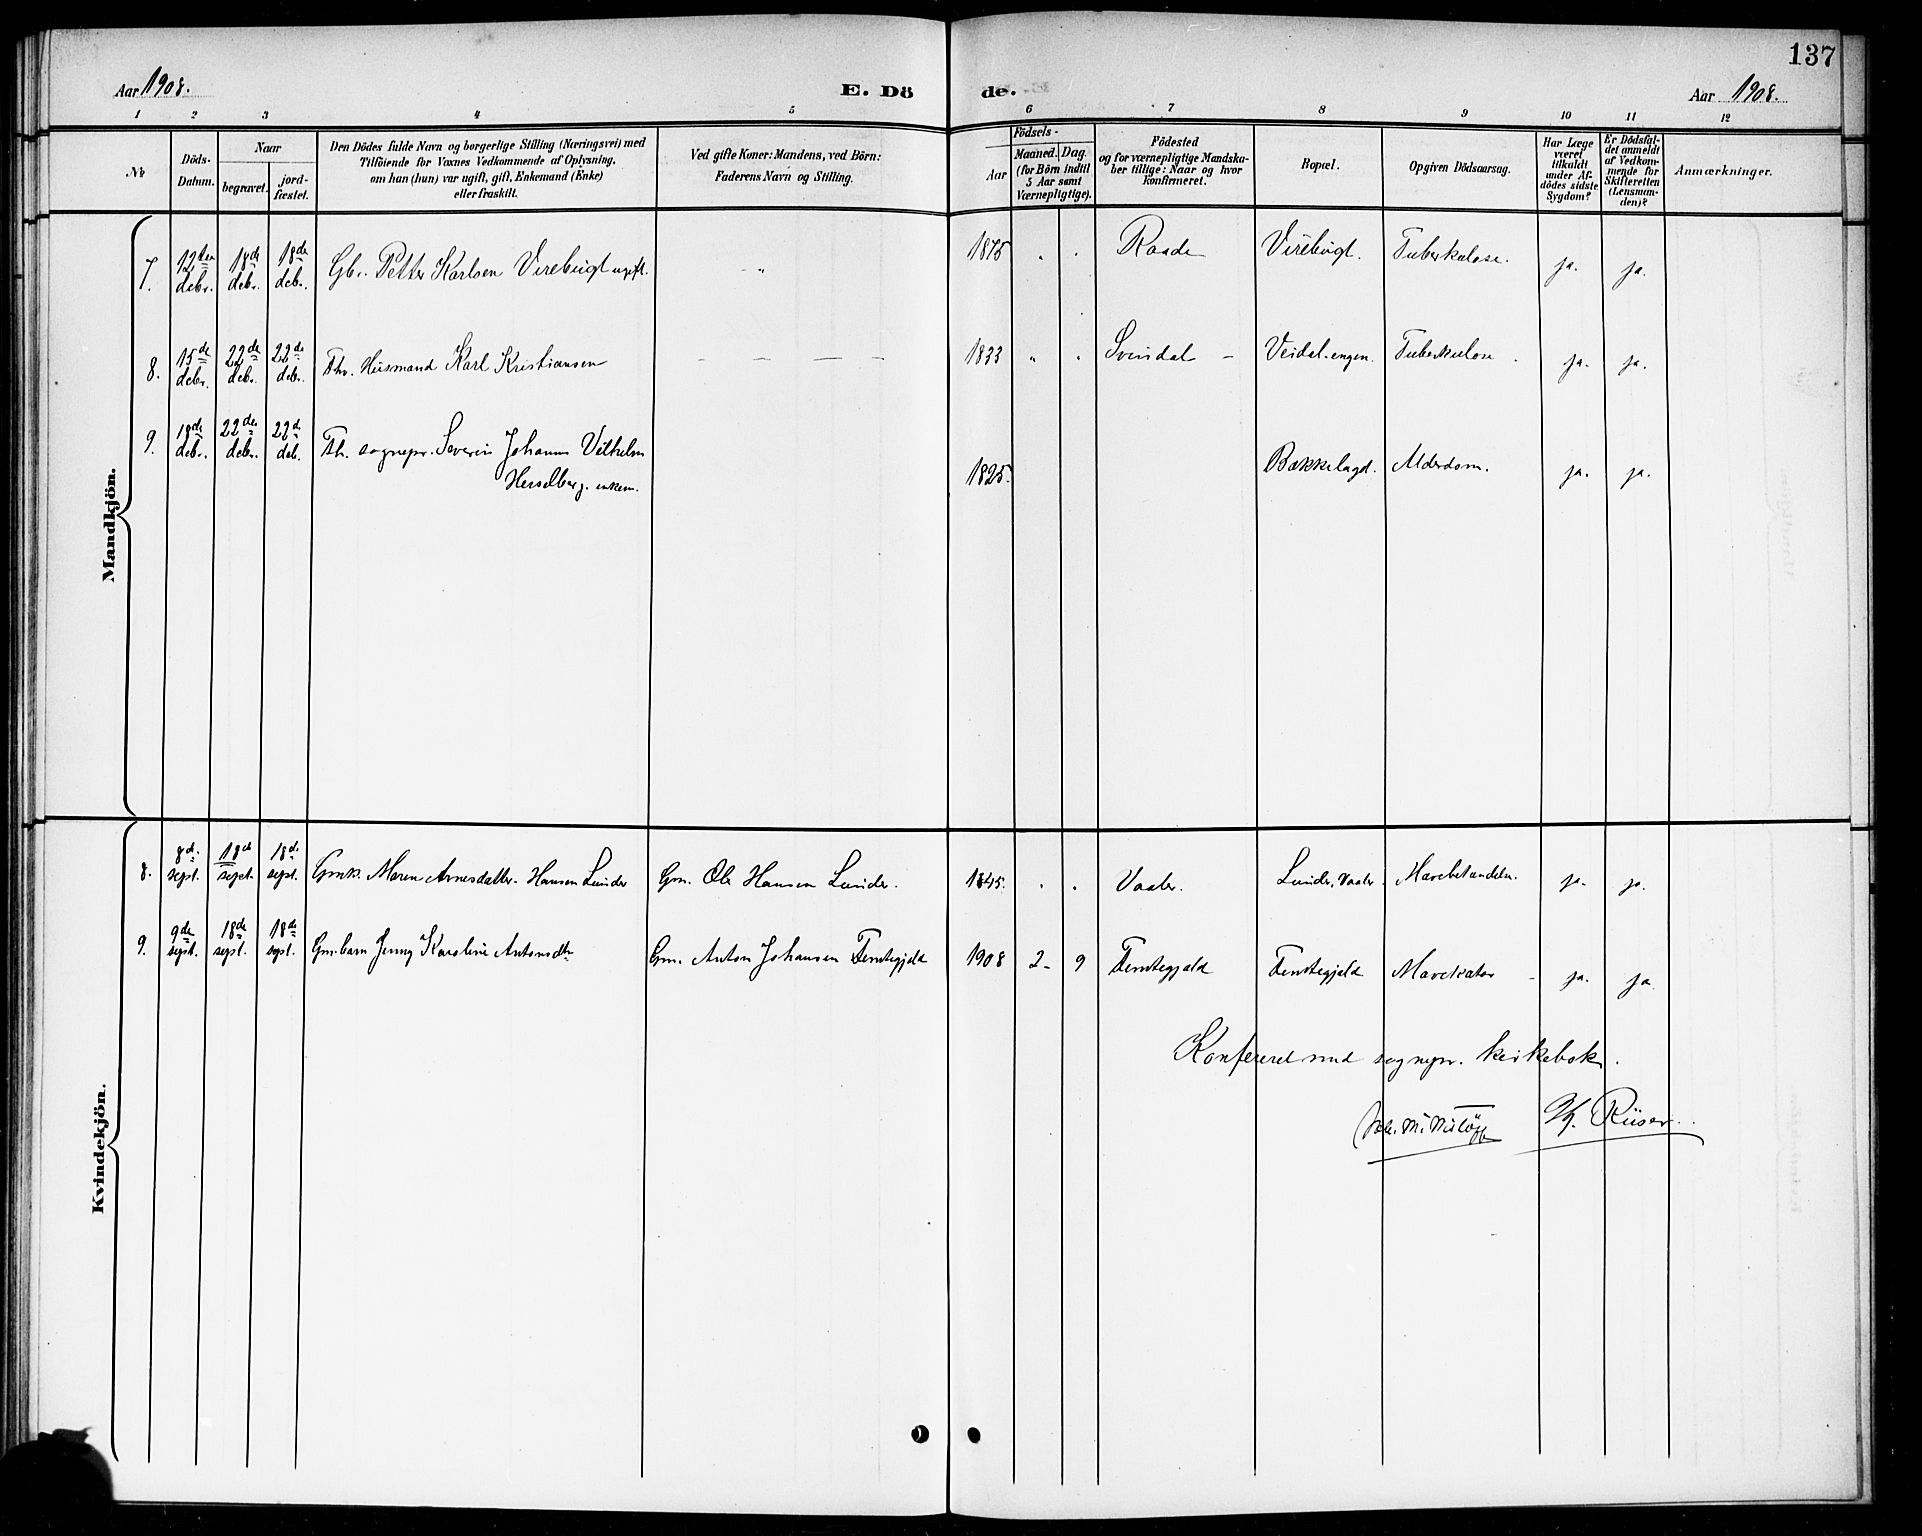 137
Aar 1908.
E. Dö de.
Aar 1908.
1 2 3 4 5 6 7 8 9 10 11 12
No
Döds-Datum.
Naar
begravet.
jord-fæstet.
Den Dödes fulde Navn og borgerlige Stilling (Næringsvei) med
Tilföiende for Voxnes Vedkommende af Oplysning.
om han (hun) var ugift, gift, Enkemand (Enke)
eller fraskilt.
Ved gifte Koner: Mandens, ved Börn:
Faderens Navn og Stilling.
Födsels-
Aar
Maaned. Dag.
(for Börn indtil
5 Aar samt
Værnepligtige).
Födested
og for værnepligtige Mandska-
ber tillige: Naar og hvor
Konfirmeret.
Bopæl.
Opgiven Dödsaarsag.
Har Læge
været
tilkaldt
under Af-
dödes sidste
Sygdom?
Er Dödsfal-
det anmeldt
af Vedkom-
mende for
Skifteretten
(Lensman-
den)?
Anmærkninger.
Mandkjön.
7. 12te debr. 18de debr. 18de debr. Gbr. Petter Karlsen Virebugt ugift. " 1875 " " Raade Virebugt. Tuberkulose. ja. ja.
8. 15de debr. 22de debr. 22de debr. Fhv. Husmand Karl Kristiansen — — — — 1833 " " Svindal – Veidal-engen. Tuberkulose. ja. ja.
9. 18de debr. 22de debr. 22d deb. Fh. sognepr. Severin Johannes Vilhelm
Hesselberg. enkem. 1825. Bækkelagd. Alderdom. ja. ja.
Kvindekjön.
8. 8d. sept. 18de sept. 18d. sept. Gmk. Maren Arnesdatter Hansen Lunder Gm. Ole Hansen Lunder. 1845. " " Vaaler. Lunder, Vaaler. Mavebetændelse. ja. ja.
9. 9de sept. 18de sept. 18de sept. Gm.barn Jenny Karoline Antonsdtr Gm. Anton Johansen Femtegjeld 1908 2 - 9 Femtegjeld Femtegjeld Mavekatar – ja. ja.
Konfereret med sognepr. kirkebok.
Riiser.